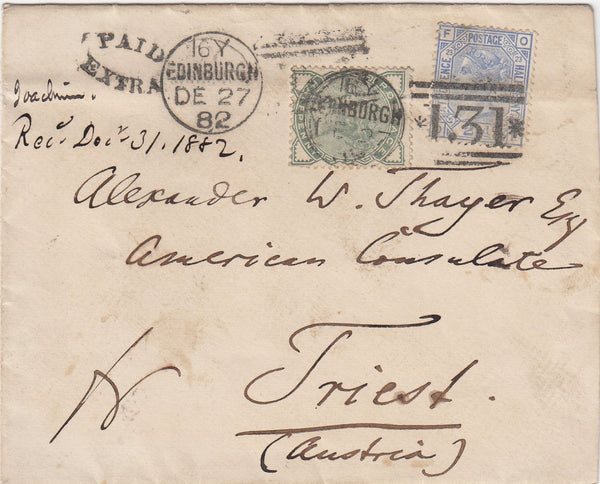 PAID
EXTRA
16Y
EDINBURGH
DE 27
82
EDINBURGH
F O
POSTAGE
131
Joachim.
Recd Decr 31. 1882.
Alexander W. Thayer Esq
American Consulate
Triest.
(Austria)